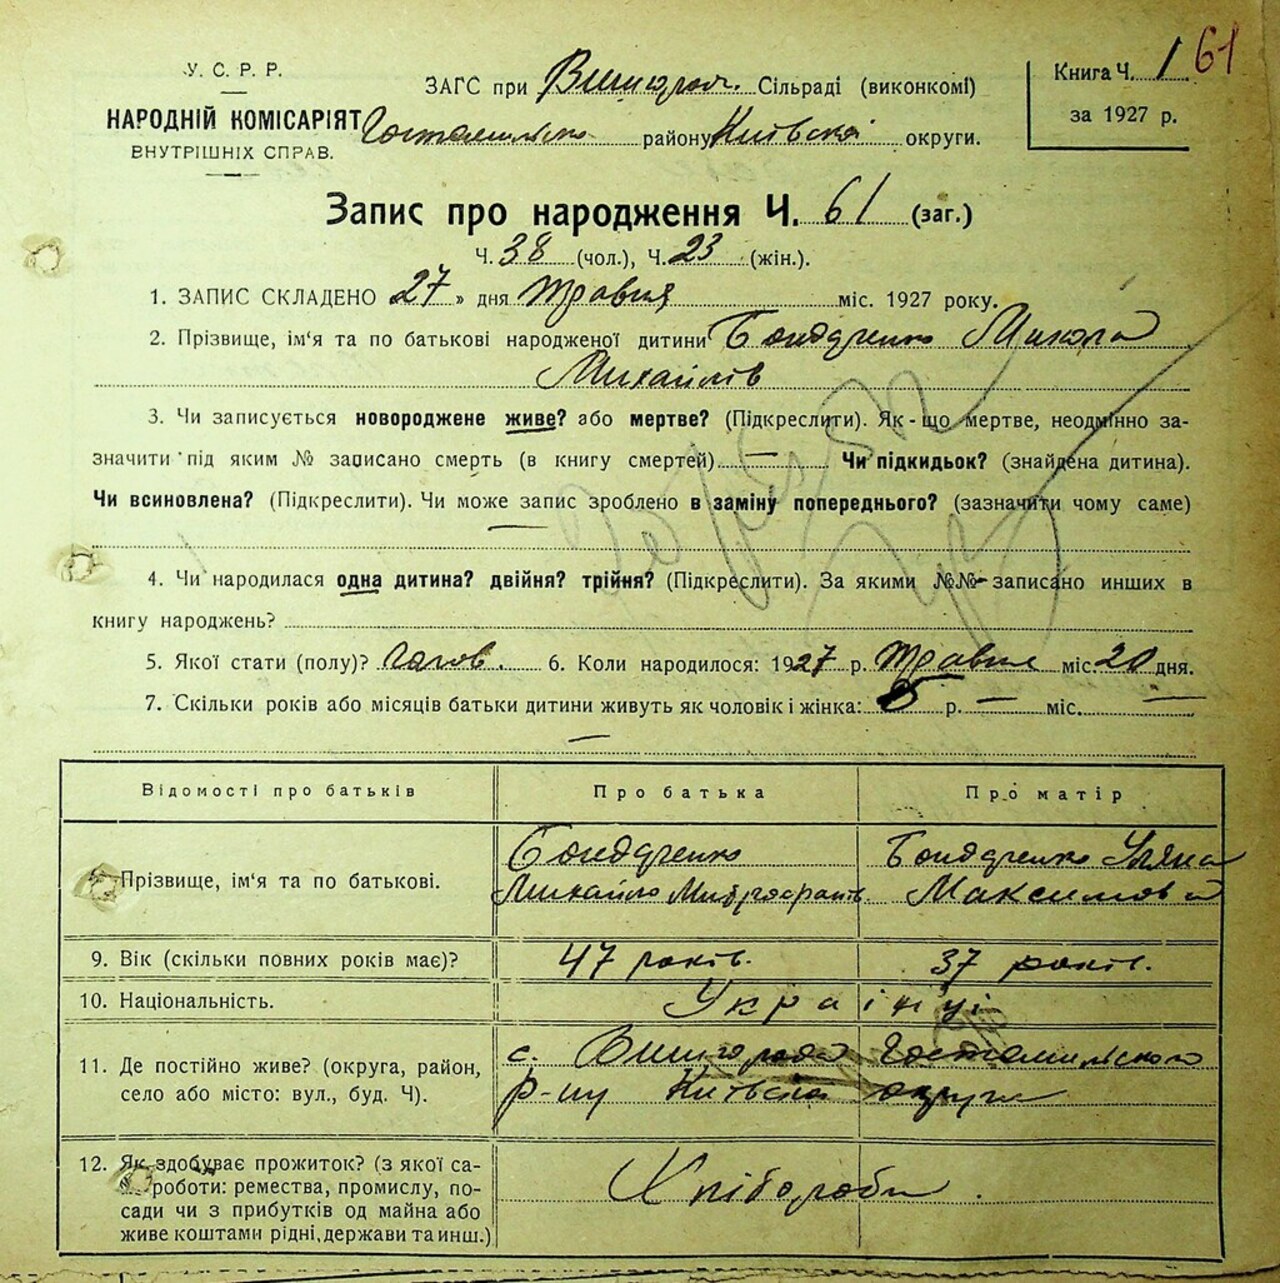 У. С. Р. Р.
НАРОДНІЙ КОМІСАРІЯТ
ВНУТРІШНІХ СПРАВ.
ЗАГС при Вишгрод. Сільраді (виконкомі)
Гостомельсько району Київської округи.
Книга Ч. 1
61
за 1927 р.
Запис про народження Ч. 61 (заг.)
Ч. 38 (чол.), Ч. 23 (жін.).
1. ЗАПИС СКЛАДЕНО 27 » дня травня міс. 1927 року.
2. Прізвище, ім'я та по батькові народженої дитини Бондаренко Микола
Михайлів
3. Чи записується новороджене живе? або мертве? (Підкреслити). Як-що мертве, неодмінно за-
значити під яким № записано смерть (в книгу смертей) — Чи підкидьок? (знайдена дитина).
Чи всиновлена? (Підкреслити). Чи може запис зроблено в заміну попереднього? (зазначити чому саме)
4. Чи народилася одна дитина? двійня? трійня? (Підкреслити). За якими №№ записано инших в
книгу народжень?
5. Якої стати (полу)? Чолов. 6. Коли народилося: 1927 р. травня міс. 20 дня.
7. Скільки років або місяців батьки дитини живуть як чоловік і жінка: 5 р. — міс. —
—
Відомості про батьків Про батька Про матір
Прізвище, ім'я та по батькові.
Бондаренко
Михайло Митрофанів.
Бондаренко Уляна
Максимова
9. Вік (скільки повних років має)? 47 років. 37 років.
10. Національність. Українці
11. Де постійно живе? (округа, район,
село або місто: вул., буд. Ч).
с. Вишгорода Гостомельського
р-ну Київська округа
12. Як здобуває прожиток? (з якої са-
роботи: ремества, промислу, по-
сади чи з прибутків од майна або
живе коштами рідні, держави та инш.)
Хлібороби.